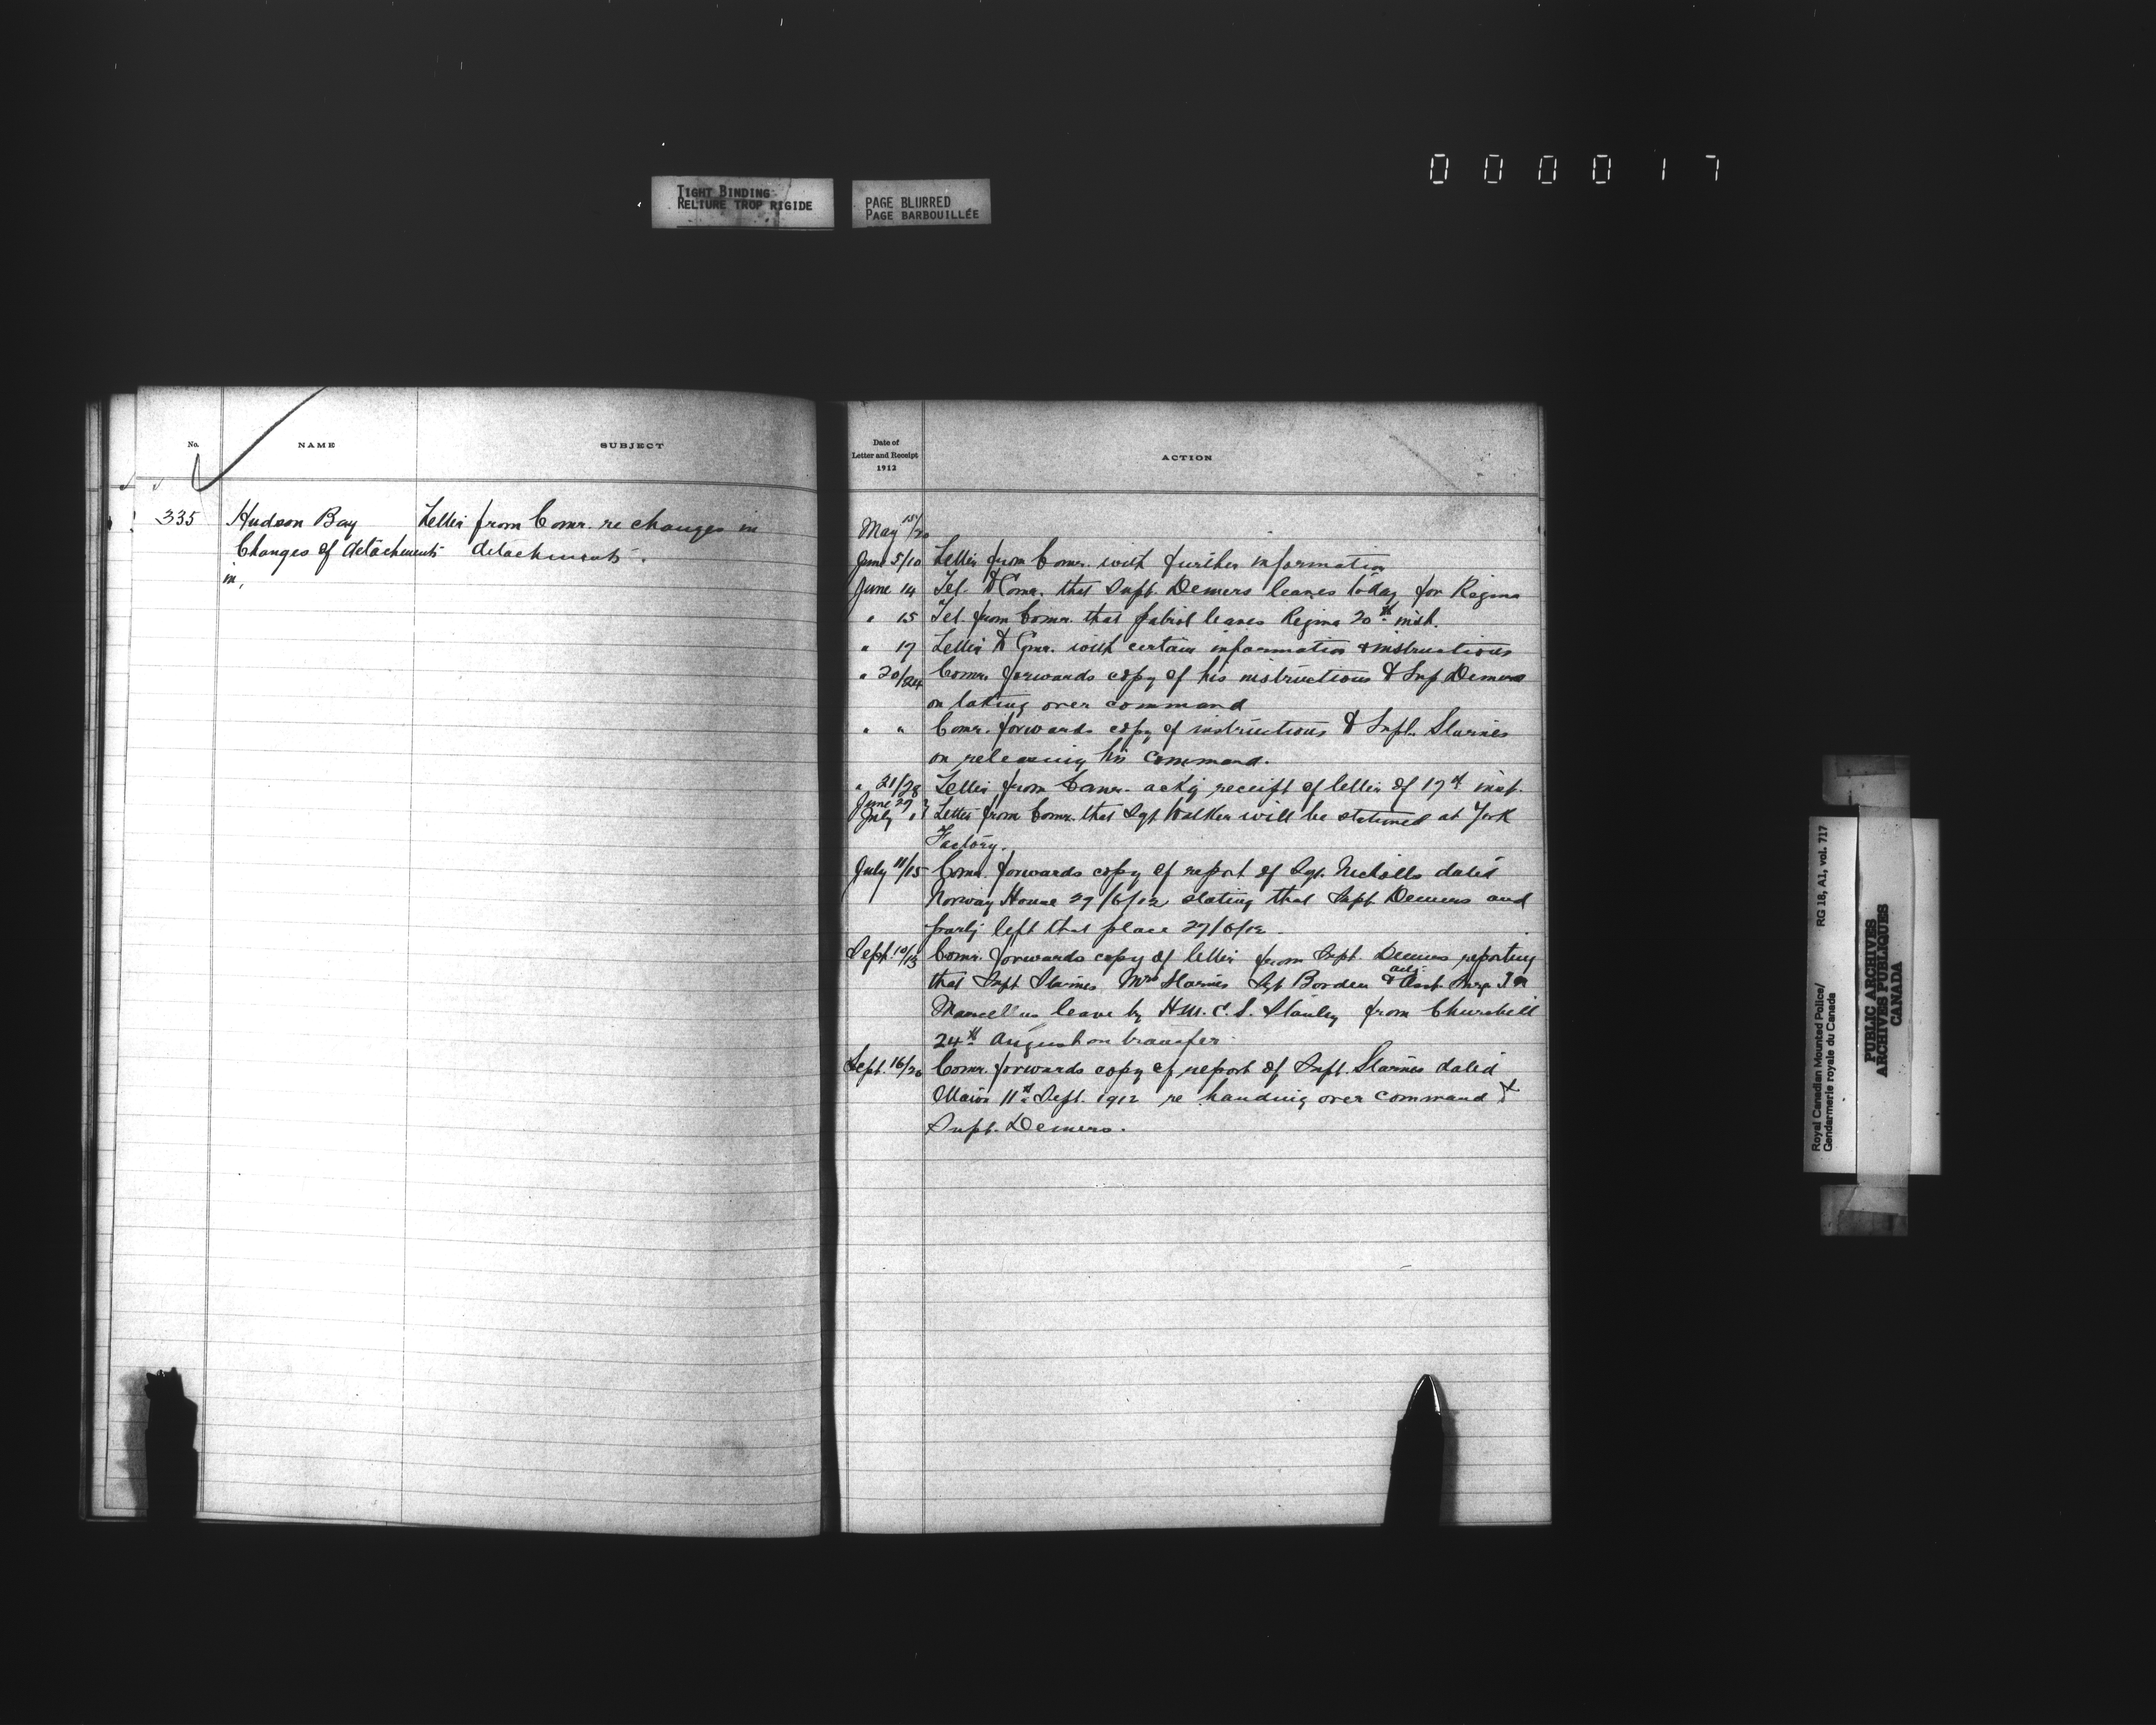 0 0 0 0 1 7
TIGHT BINDING
RELIURE TROP RIGIDE
PAGE BLURRED
PAGE BARBOUILLÉE
No.
NAME
SUBJECT
335
Hudson Bay
Changes of detachments
in,
Letter from Comr. re changes in
detachments.
Date of
Letter and Receipt
1912
ACTION
May 15/20
June 5/10 Letter from Comr. with further information
June 14 Tel. to Comr. that Supt. Demers leaves today for Regina
" 15 Tel. from Comr. that patrol leaves Regina 20th inst.
" 17 Letter to Comr. with certain information & instructions
" 20/24 Comr. forwards copy of his instructions to Sup Demers
on taking over command
" " Comr. forwards copy of instructions to Supt. Starnes
on releasing his command.
" 21/28 Letter from Comr. ackg receipt of letter of 17th inst.
June 27
July 1 Letter from Comr. that Sgt Walker will be stationed at York
Factory.
July 11/15 Comr. forwards copy of report of Sgt. Nicholls dated
Norway House 27/6/12 stating that Supt Demers and
party left that place 27/6/12.
Sept. 10/13 Comr. forwards copy of letter from Supt. Demers reporting
that Supt Starnes, Mrs Starnes Sgt Borden & actg. Asst. Surg.
Marcellus leave by H.M.C.S. Stanley from Churchill
24th August on transfer
Sept. 16/20 Comr. forwards copy of report of Supt. Starnes dated
11th Sept. 1912 re handing over command to
Supt. Demers.
Royal Canadian Mounted Police/
Gendarmerie royale du Canada
RG 18, A1, vol. 717
PUBLIC ARCHIVES
ARCHIVES PUBLIQUES
CANADA